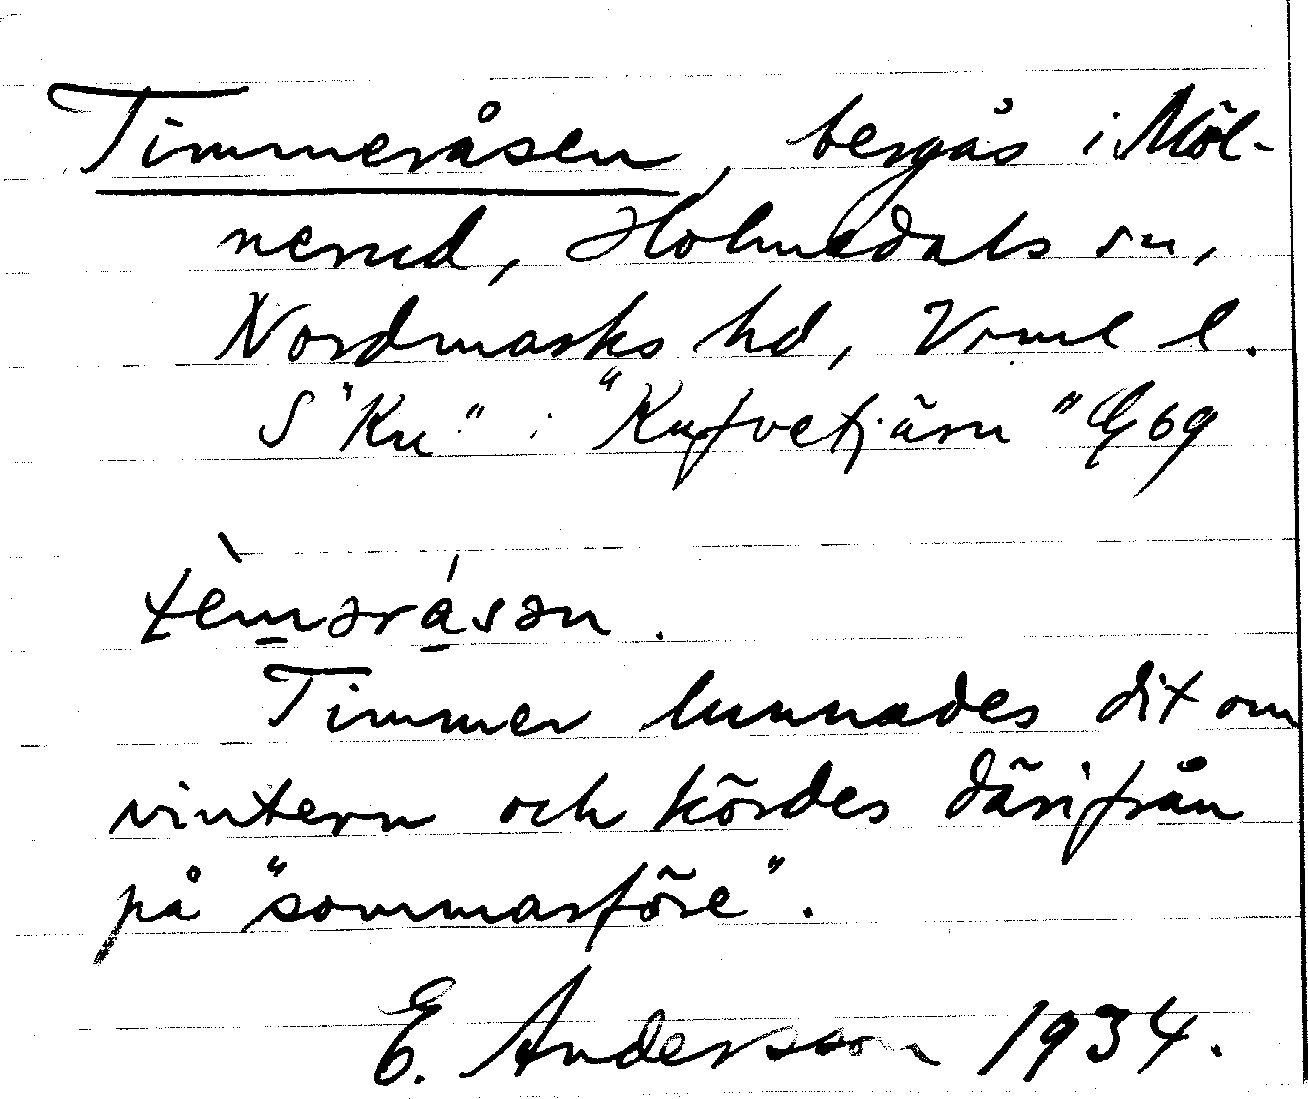 Timmeråsen, bergås i Möl-
nerud, Holmedals sn,
Nordmarks hd, Vrml l.
S "Ku" i "Kufvetjärn" G 69
tèmərásən.
Timmer lunnades dit om
vintern och kördes därifrån
på "sommarföre".
E. Andersson 1934.